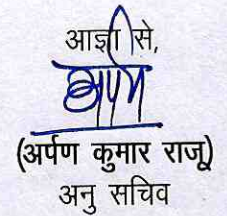 आज्ञा से,
अर्पण
(अर्पण कुमार राजू)
अनु सचिव